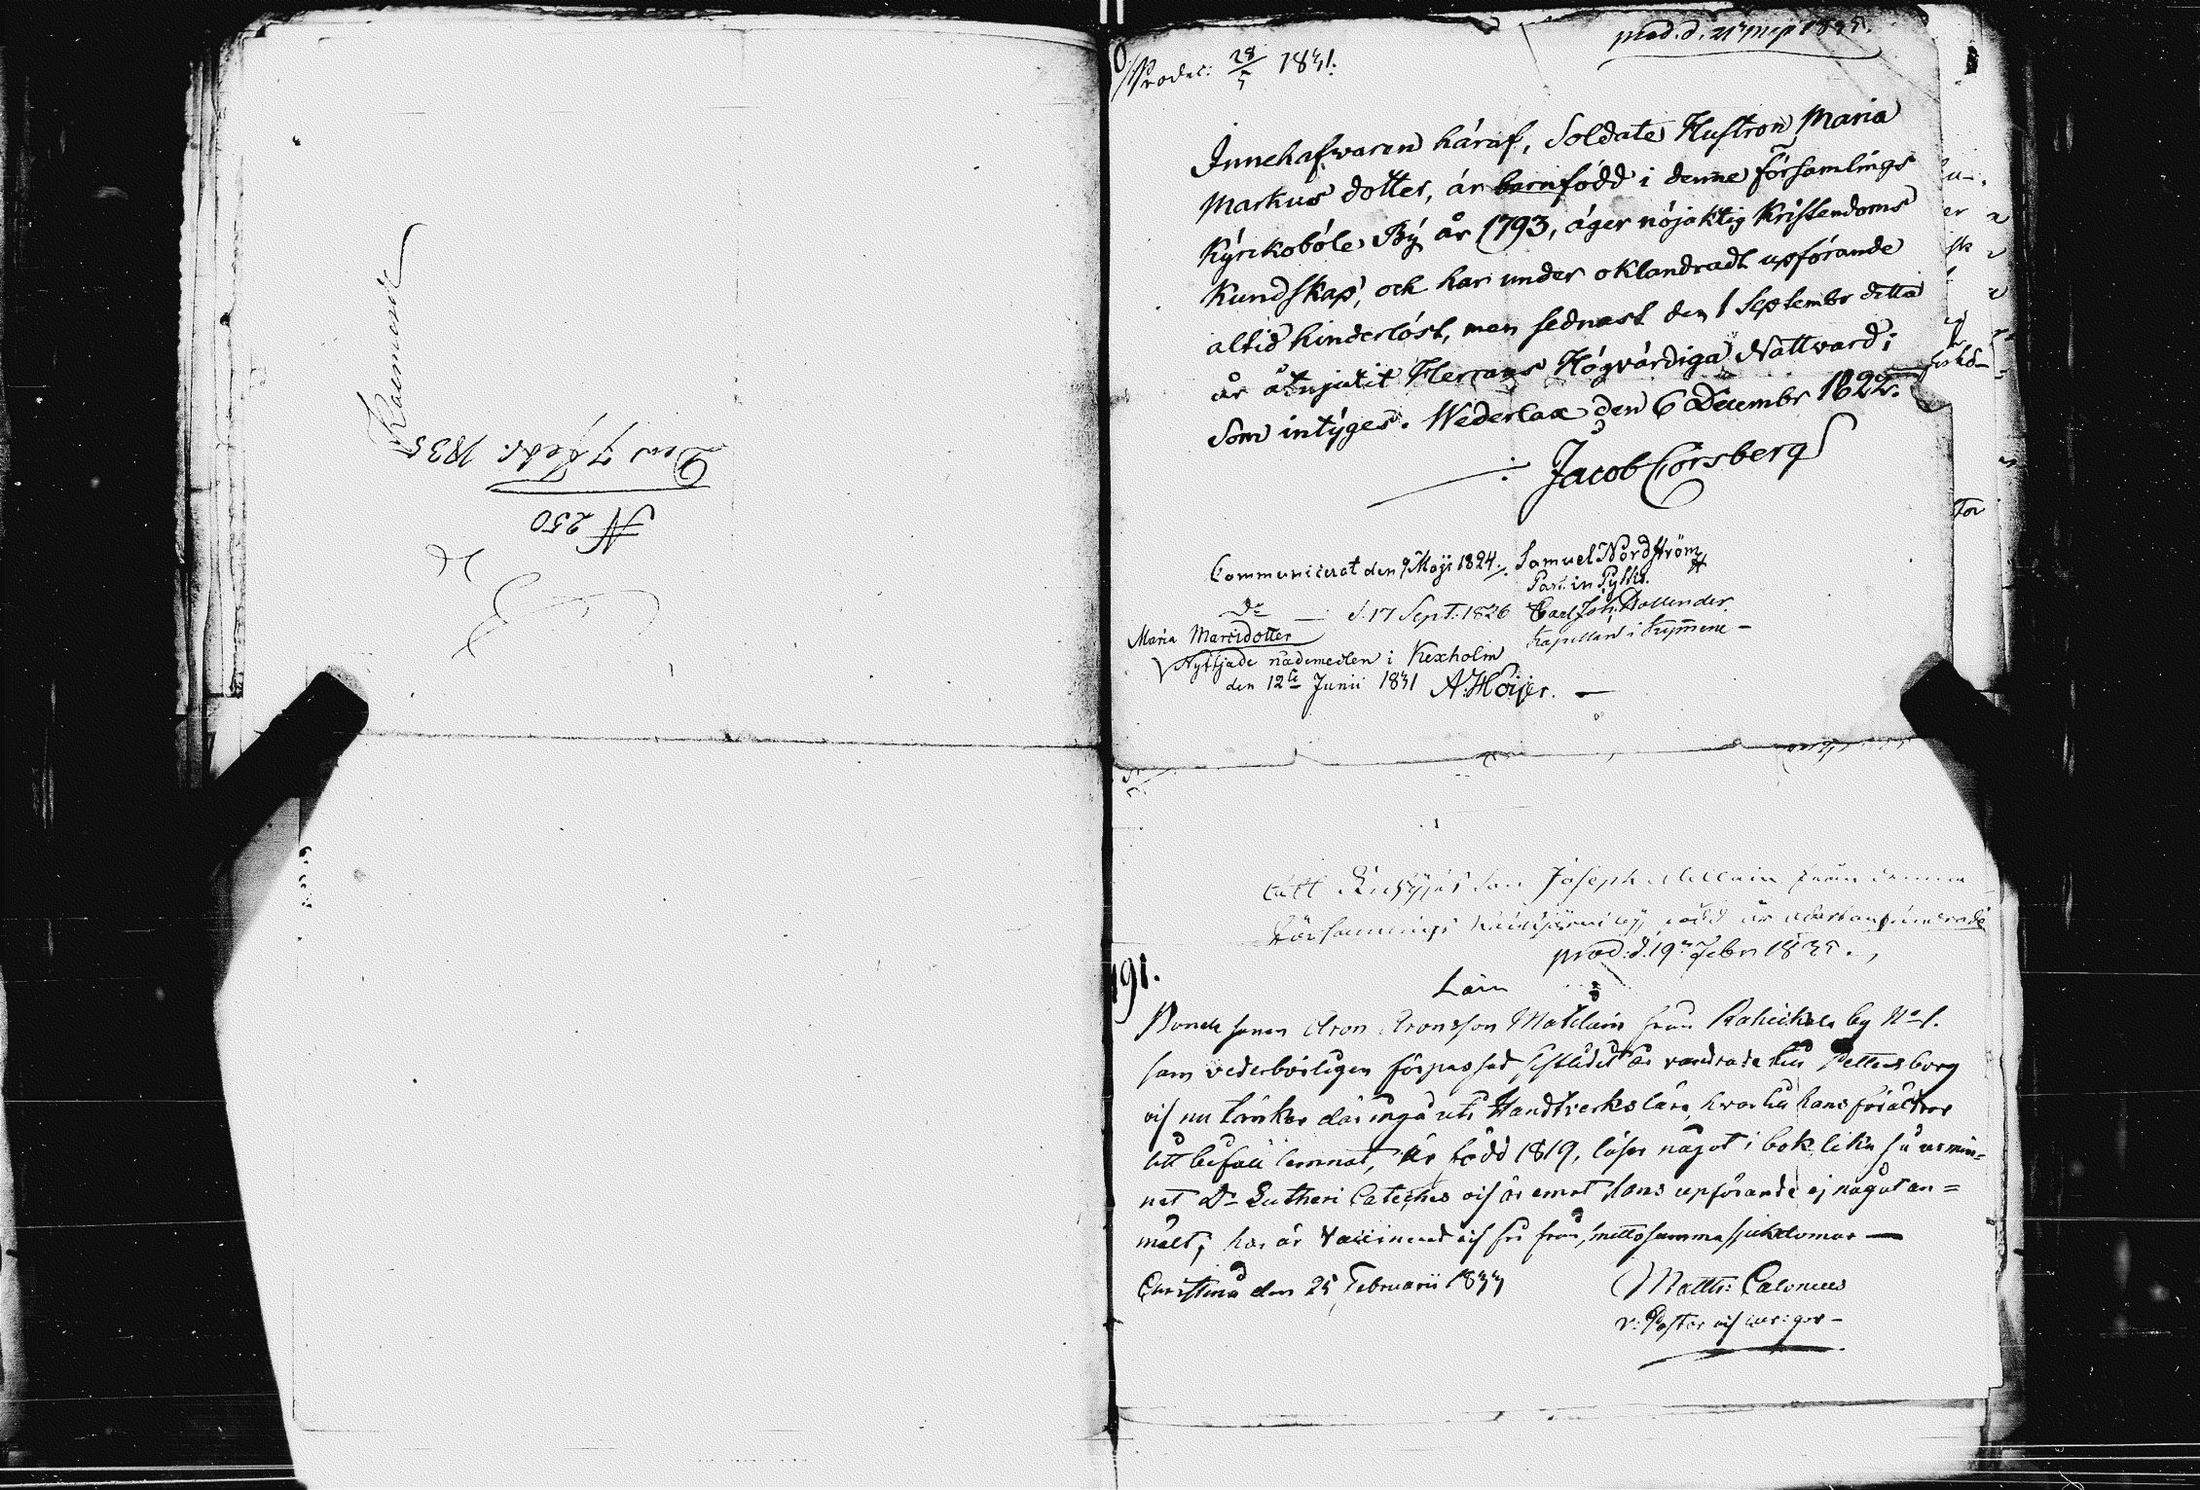 Kaemerde
Den 7 Febr. 1835
N 250
Prodec: 28/5 1831.
prod. d. 21 Maji 1835.
Innehafwaren häraf, Soldate Hustron Maria
Markus dotter, är barnfödd i denne församlings
Kyrckoböle By år 1793, äger nöjaktig Kristendoms
Kundskap, och har under oklandradt upförande
altid hinderlöst, men sednast den 1 Septembr detta
år åtnjutit Herrans Högvärdiga Nattvard;
Som intyges. Wederlax den 6 Decembr 1822.
Jacob Corsberg
Communicerat den 9 Maji 1824. Samuel Nordström
Past. in Pyttis.
Do — d. 17 Sept. 1826 Carl Joh. Dollender
Kapellan i Kymmene —
Maria Marcidotter
Nyttjade nådemedlen i Kexholm
den 12te Junii 1831 A. Höijer. —
Joseph från denna
Församlings
prod: d. 19 Febr 1835.
191.
Län
Bonde sonen Aron Aronsson Matilain från Rahikala by No 1.
som vederbörligen förpassad sistlidit år vandrade till Pettersborg
och nu tänker där ingå uti Handtverks lära, hvartill hans föräldrar
sitt bifall lemnat, är född 1819, läser något i bok lika så ur min-
net Dr Lutheri Cateches och är emot hans upförande ej något an-
märkt; har är Vaccinerad och fri från smittosamma sjukdomar —
Christina den 25 Februarii 1833
Matth: Calonius
v: Pastor